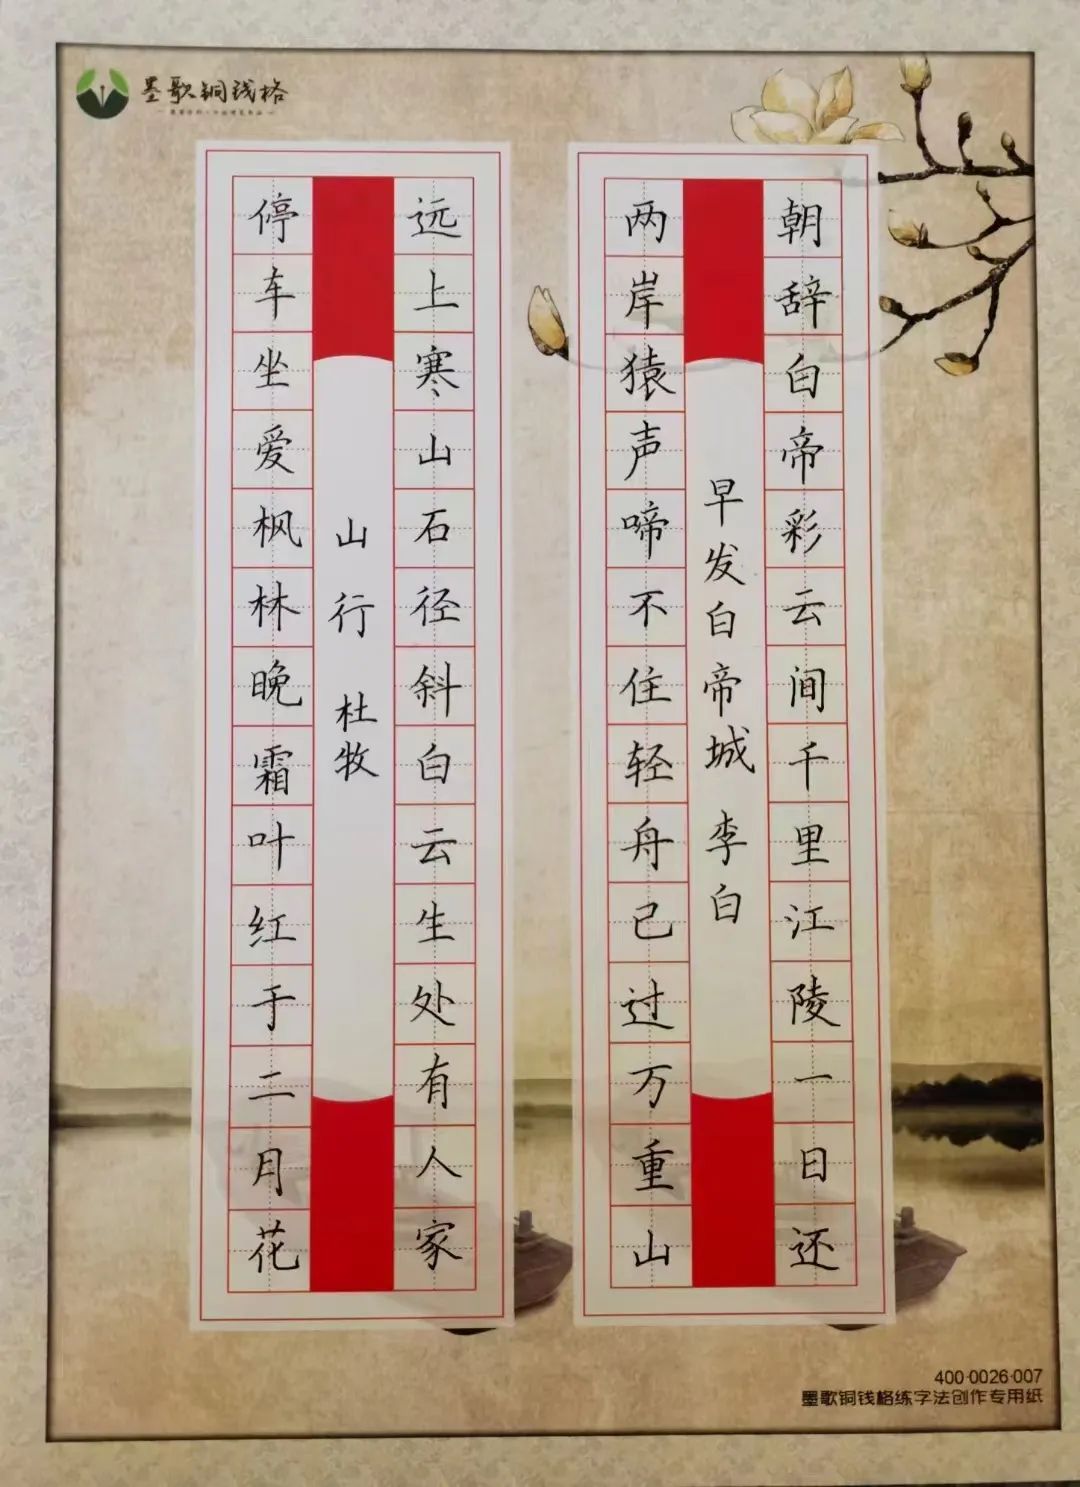 墨歌铜钱格
朝辞白帝彩云间千里江陵一日还
早发白帝城 李白
两岸猿声啼不住轻舟已过万重山
远上寒山石径斜白云生处有人家
山行 杜牧
停车坐爱枫林晚霜叶红于二月花
400·0026·007
墨歌铜钱格练字法创作专用纸